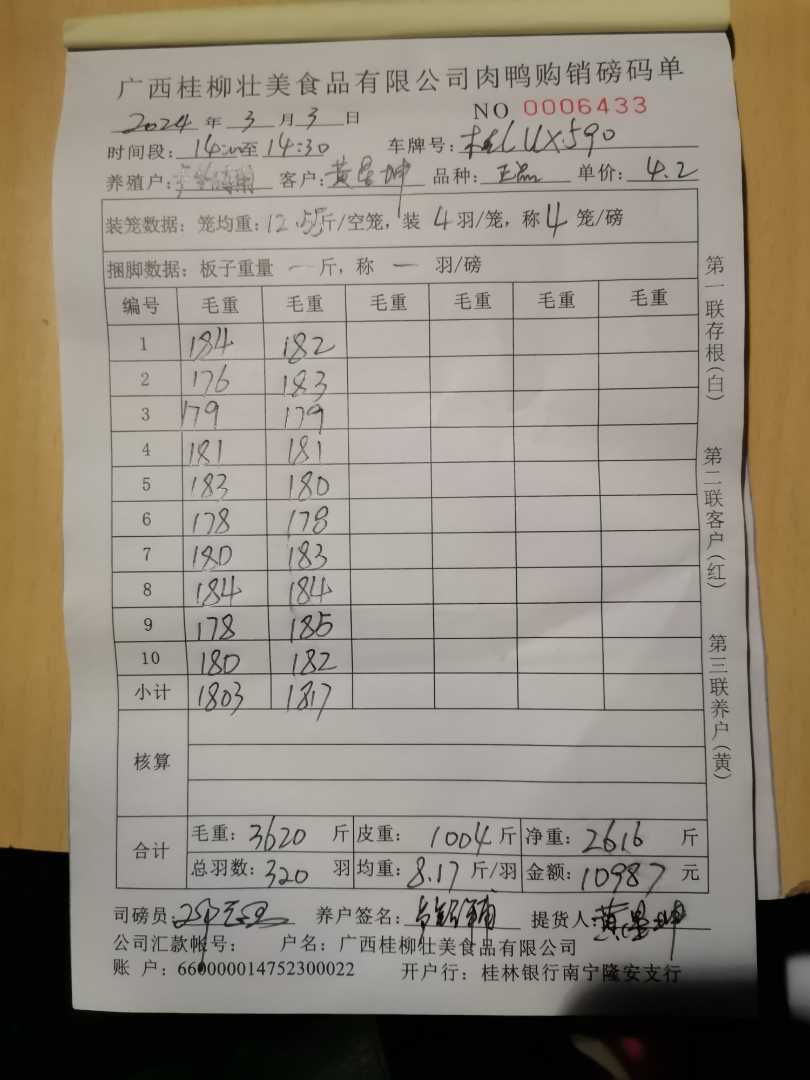 广西桂柳壮美食品有限公司肉鸭购销磅码单
2024 年 3 月 3 日 NO 0006433
时间段: 14:00至 14:30 车牌号: 桂L UX590
养殖户: 客户: 黄 坤 品种: 单价: 4.2
装笼数据: 笼均重: 12.55斤/空笼, 装 4 羽/笼, 称 4 笼/磅
捆脚数据: 板子重量 一 斤, 称 一 羽/磅
编号 毛重 毛重 毛重 毛重 毛重 毛重
1 184 182
2 176 183
3 179 179
4 181 181
5 183 180
6 178 178
7 180 183
8 184 184
9 178 185
10 180 182
小计 1803 1817
核算
合计 毛重: 3620 斤 皮重: 1004 斤 净重: 2616 斤
总羽数: 320 羽 均重: 8.17 斤/羽 金额: 10987 元
司磅员: 养户签名: 提货人: 黄 坤
公司汇款帐号: 户名: 广西桂柳壮美食品有限公司
账 户: 660000014752300022 开户行: 桂林银行南宁隆安支行
第一联存根(白)
第二联客户(红)
第三联养户(黄)